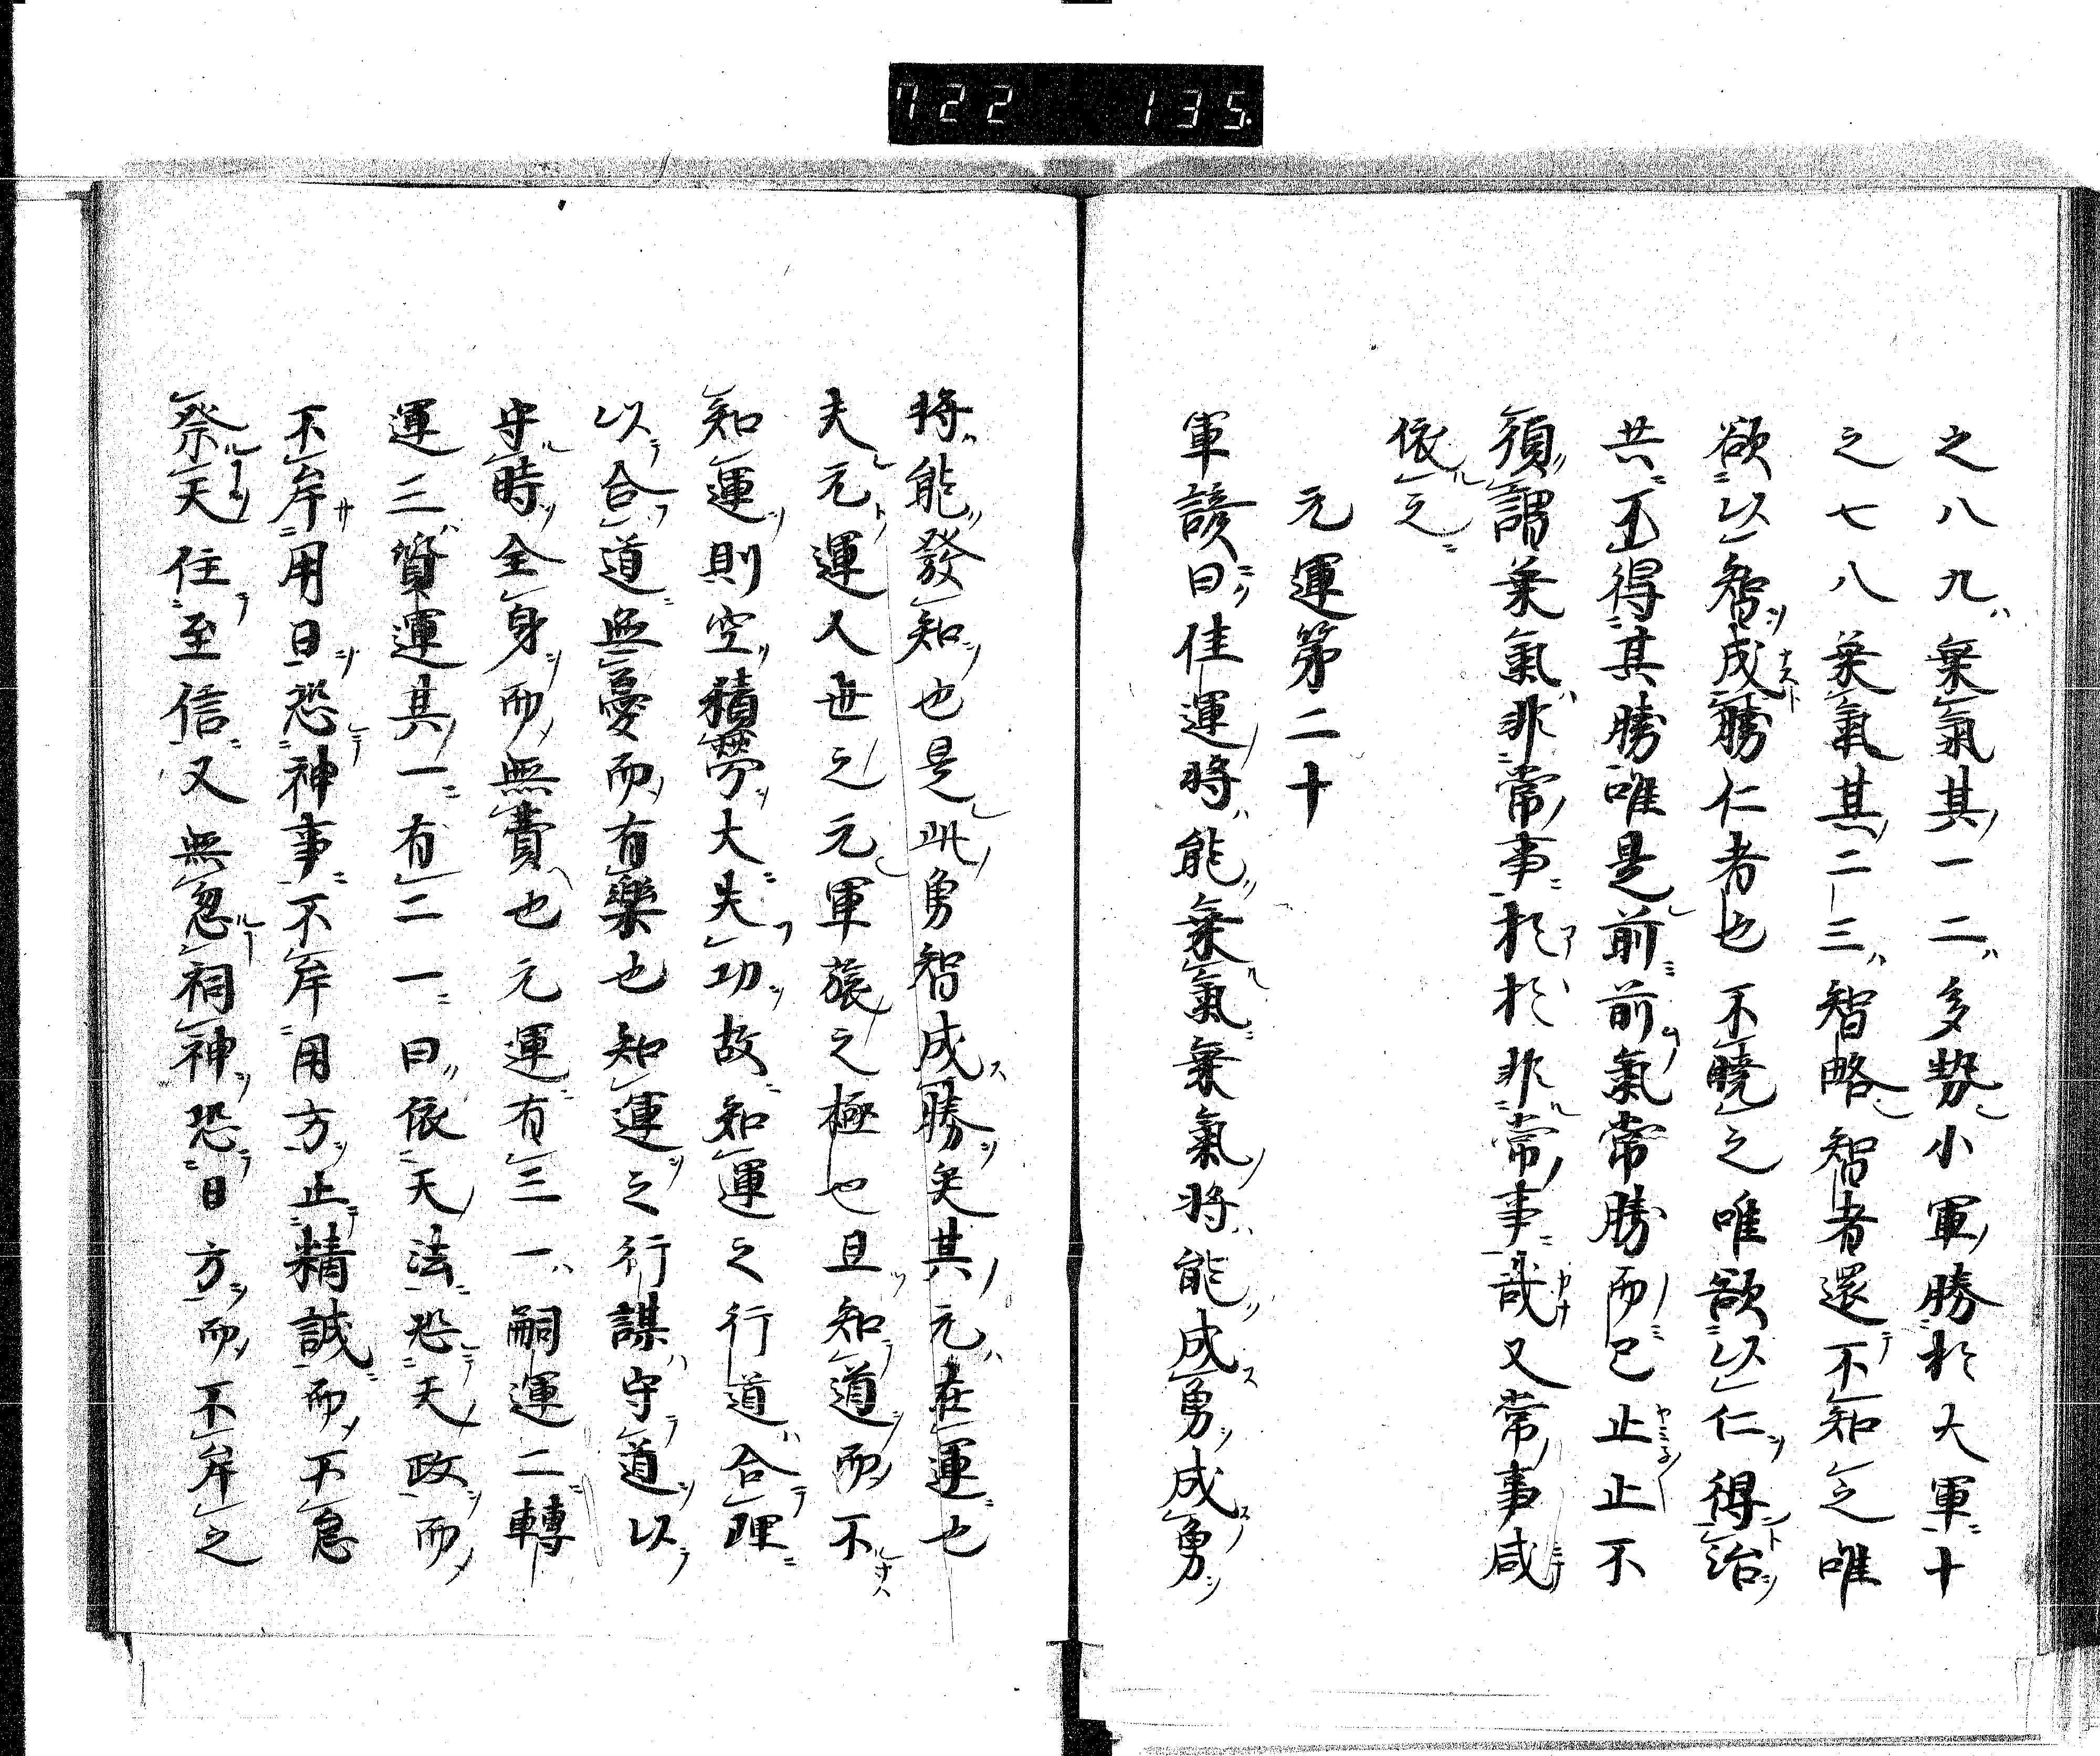 722 135
之八九ハ乗氣其ノ一二ハ多勢小軍ノ勝於大軍十
之七八乗氣其ノ二三ハ智略智者還テ不知之唯
欲以智成勝仁者也不曉之唯欲以仁得治
共不得其勝唯是前前氣常勝而已止止不
須謂乗氣非常事於於非常事哉又常事咸
依之
元運第二十
軍諺曰佳運將能乗氣乗氣將能成勇成勇
將能發知也是此勇智成勝矣其元在運也
夫元運人世之元軍旅之極也且知道而不
知運則空積勞大失功故知運之行道合理
以合道無憂而有樂也知運之行謀守道以
守時全身而無費也元運有三一嗣運二轉
運三資運其一有二一曰依天法恐天政而
不弁用日恐神事不弁用方止精誠而不怠
祭天住至信又無忽祠神恐日方而不弁之